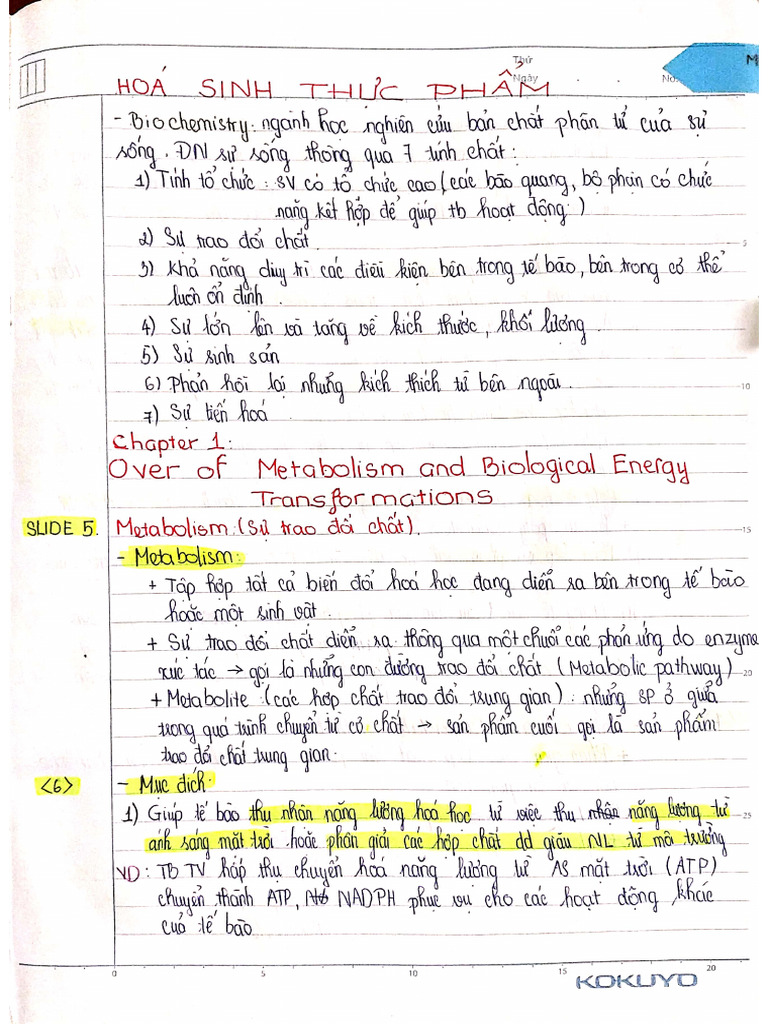 Thứ
Ngày
No.
M
HOÁ SINH THỰC PHẨM
- Biochemistry: ngành học nghiên cứu bản chất phân tử của sự
sống. ĐN sự sống thông qua 7 tính chất:
1) Tính tổ chức: SV có tổ chức cao (các bào quang, bộ phận có chức
năng kết hợp để giúp tb hoạt động.)
2) Sự trao đổi chất.
3) Khả năng duy trì các điều kiện bên trong tế bào, bên trong cơ thể
luôn ổn định.
4) Sự lớn lên và tăng về kích thước, khối lượng.
5) Sự sinh sản
6) Phản hồi lại những kích thích từ bên ngoài.
7) Sự tiến hoá
Chapter 1:
Over of Metabolism and Biological Energy
Transformations
SLIDE 5. Metabolism: (Sự trao đổi chất).
- Metabolism:
+ Tập hợp tất cả biến đổi hoá học đang diễn ra bên trong tế bào
hoặc một sinh vật.
+ Sự trao đổi chất diễn ra thông qua một chuỗi các phản ứng do enzyme
xúc tác → gọi là những con đường trao đổi chất (Metabolic pathway)
+ Metabolite (các hợp chất trao đổi trung gian): những SP ở giữa
trong quá trình chuyển từ cơ chất → sản phẩm cuối gọi là sản phẩm
trao đổi chất trung gian.
<6> - Mục đích.
1) Giúp tế bào thu nhận năng lượng hoá học từ việc thu nhận năng lượng từ
ánh sáng mặt trời hoặc phân giải các hợp chất dd giàu NL từ môi trường
VD: TB TV hấp thụ chuyển hoá năng lượng từ AS mặt trời (ATP)
chuyển thành ATP, NADPH phục vụ cho các hoạt động khác
của tế bào
5
10
15
20
25
0 5 10 15 20
KOKUYO